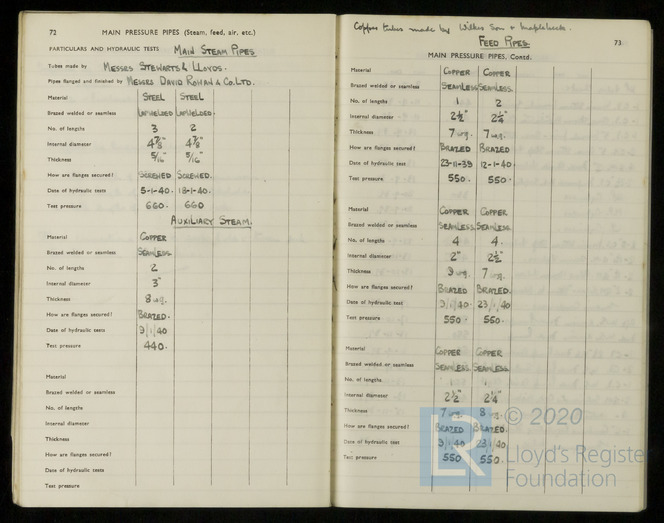 72 MAIN PRESSURE PIPES (Steam, feed, air, etc.)
PARTICULARS AND HYDRAULIC TESTS MAIN STEAM PIPES
Tubes made by MESSES STEWARTS & LLOYDS.
Pipes flanged and finished by MESSES DAVID ROWAN & CO. LTD.
Material STEEL STEEL
Brazed welded or seamless LAPWELDED LAPWELDED.
No. of lengths 3 2
Internal diameter 4⅞" 4⅞"
Thickness 5/16" 5/16"
How are flanges secured? SCREWED SCREWED.
Date of hydraulic tests 5-1-40. 18-1-40.
Test pressure 660. 660
AUXILIARY STEAM.
Material COPPER
Brazed welded or seamless SEAMLESS.
No. of lengths 2
Internal diameter 3"
Thickness 8 w.g.
How are flanges secured? BRAZED.
Date of hydraulic tests 9/1/40
Test pressure 440.
Material
Brazed welded or seamless
No. of lengths
Internal diameter
Thickness
How are flanges secured?
Date of hydraulic tests
Test pressure
Copper tubes made by Wilkes Son & Mapplebeck.
FEED PIPES. 73
MAIN PRESSURE PIPES, Contd.
Material COPPER COPPER
Brazed welded or seamless SEAMLESS SEAMLESS.
No. of lengths 1 2
Internal diameter 2½" 2¼"
Thickness 7 w.g. 7 w.g.
How are flanges secured? BRAZED BRAZED
Date of hydraulic tests 23-11-39 12-1-40.
Test pressure 550. 550.
Material COPPER COPPER
Brazed welded or seamless SEAMLESS SEAMLESS.
No. of lengths 4 4.
Internal diameter 2" 2½"
Thickness 9 w.g. 7 w.g.
How are flanges secured? BRAZED BRAZED.
Date of hydraulic tests 9/1/40. 23/1/40
Test pressure 550. 550.
Material COPPER COPPER
Brazed welded or seamless SEAMLESS SEAMLESS.
No. of lengths 1 1
Internal diameter 2½" 2¼"
Thickness 7 w.g. 8 w.g.
How are flanges secured? BRAZED BRAZED.
Date of hydraulic tests 9/1/40 23/1/40.
Test pressure 550 550.
LR © 2020
Lloyd's Register
Foundation